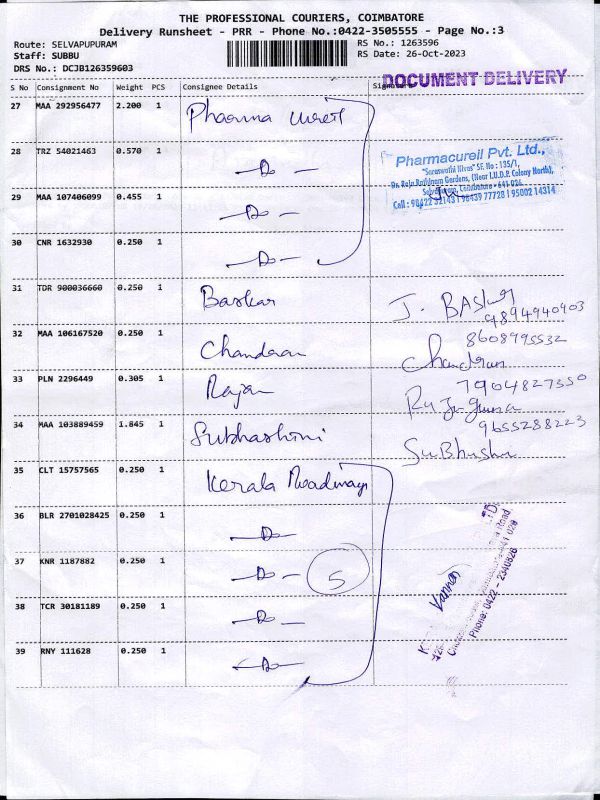 THE PROFESSIONAL COURIERS, COIMBATORE
Delivery Runsheet - PRR - Phone No.:0422-3505555 - Page No.:3
Route: SELVAPUPURAM
RS No.: 1263596
Staff: SUBBU
RS Date: 26-Oct-2023
DRS No.: DCJB126359603
DOCUMENT DELIVERY
S No Consignment No Weight PCS Consignee Details Signature
27 MAA 292956477 2.200 1 Pharma
28 TRZ 54021463 0.570 1 -Do-
Pharmacureil Pvt. Ltd.,
"Saraswathi Nivas" SF. No : 135/1,
Dr. Raja Rathinam Gardens, (Near I.U.D.P. Colony North),
Selvapuram, Coimbatore - 641 026.
Cell : 98422 32143 | 98439 77728 | 95002 14314
29 MAA 107406099 0.455 1 -Do-
30 CNR 1632930 0.250 1 -Do-
31 TDR 900036660 0.250 1 Baskar J. BASkar
9894940403
32 MAA 106167520 0.250 1 Chandran Chandran
8608995532
33 PLN 2296449 0.305 1 Rajan
7904827550
34 MAA 103889459 1.845 1 Subhashini
9655288223
35 CLT 15757565 0.250 1 Kerala Roadways
36 BLR 2701028425 0.250 1 -Do-
37 KNR 1187882 0.250 1 -Do- 5
38 TCR 30181189 0.250 1 -Do-
39 RNY 111628 0.250 1 -Do-
Phone: 0422 - 2340826